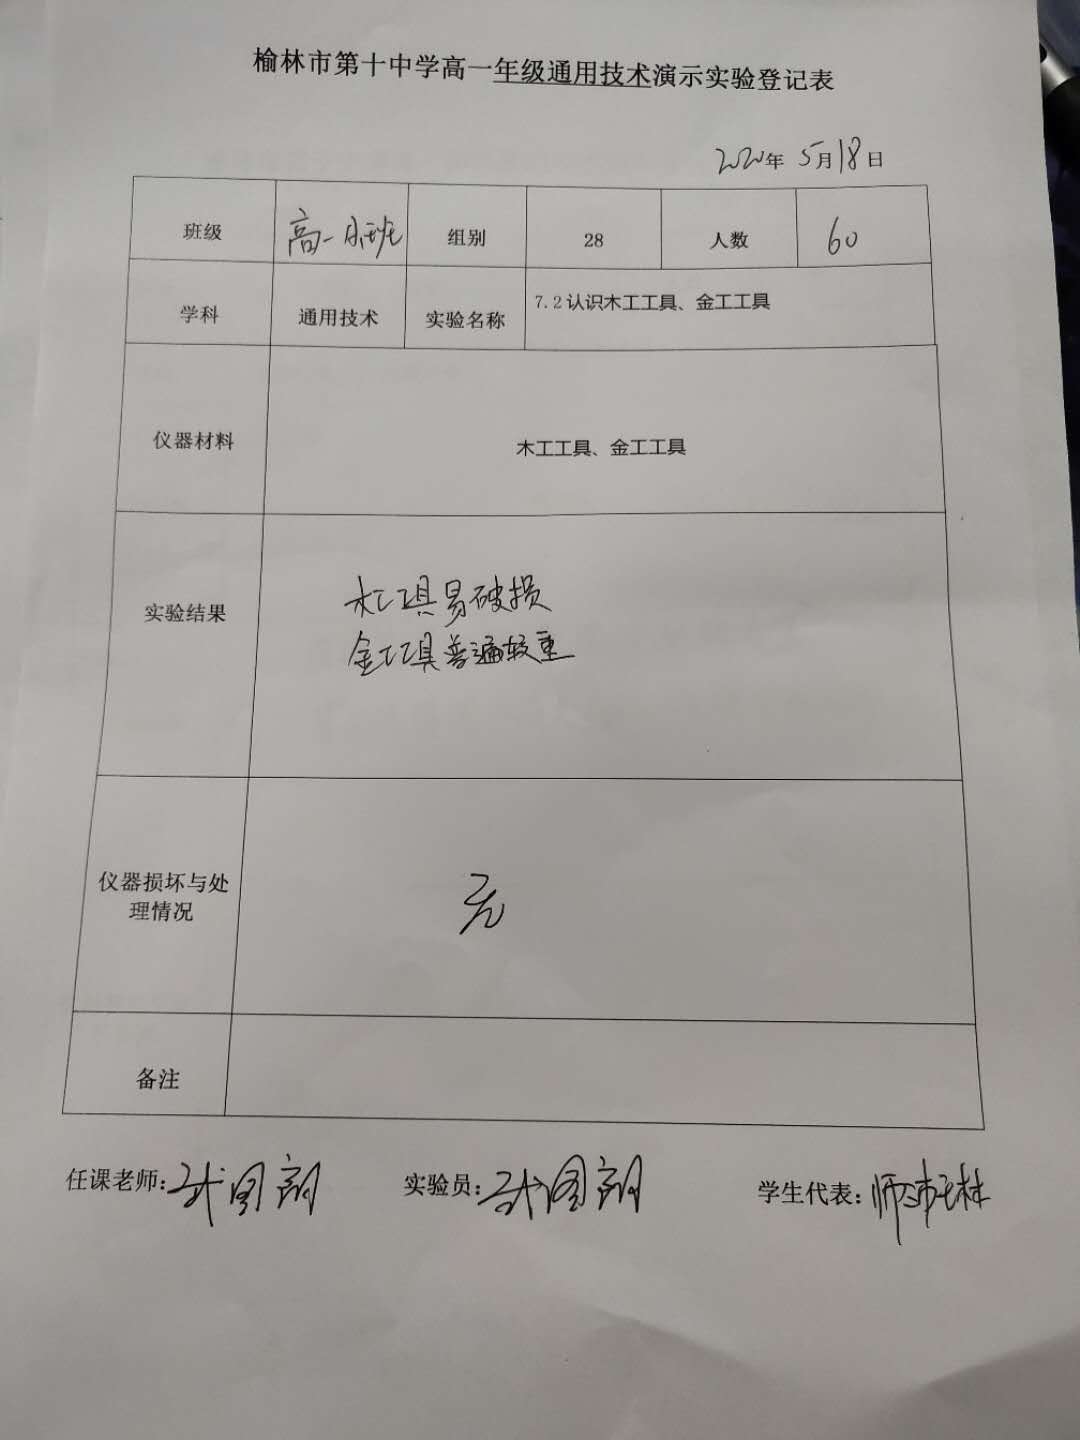 榆林市第十中学高一年级通用技术演示实验登记表
2020年 5月18日
班级 高一 班 组别 28 人数 60
学科 通用技术 实验名称 7.2认识木工工具、金工工具
仪器材料 木工工具、金工工具
实验结果
木工工具易破损
金工工具普遍较重
仪器损坏与处
理情况
无
备注
任课老师: 实验员: 学生代表: